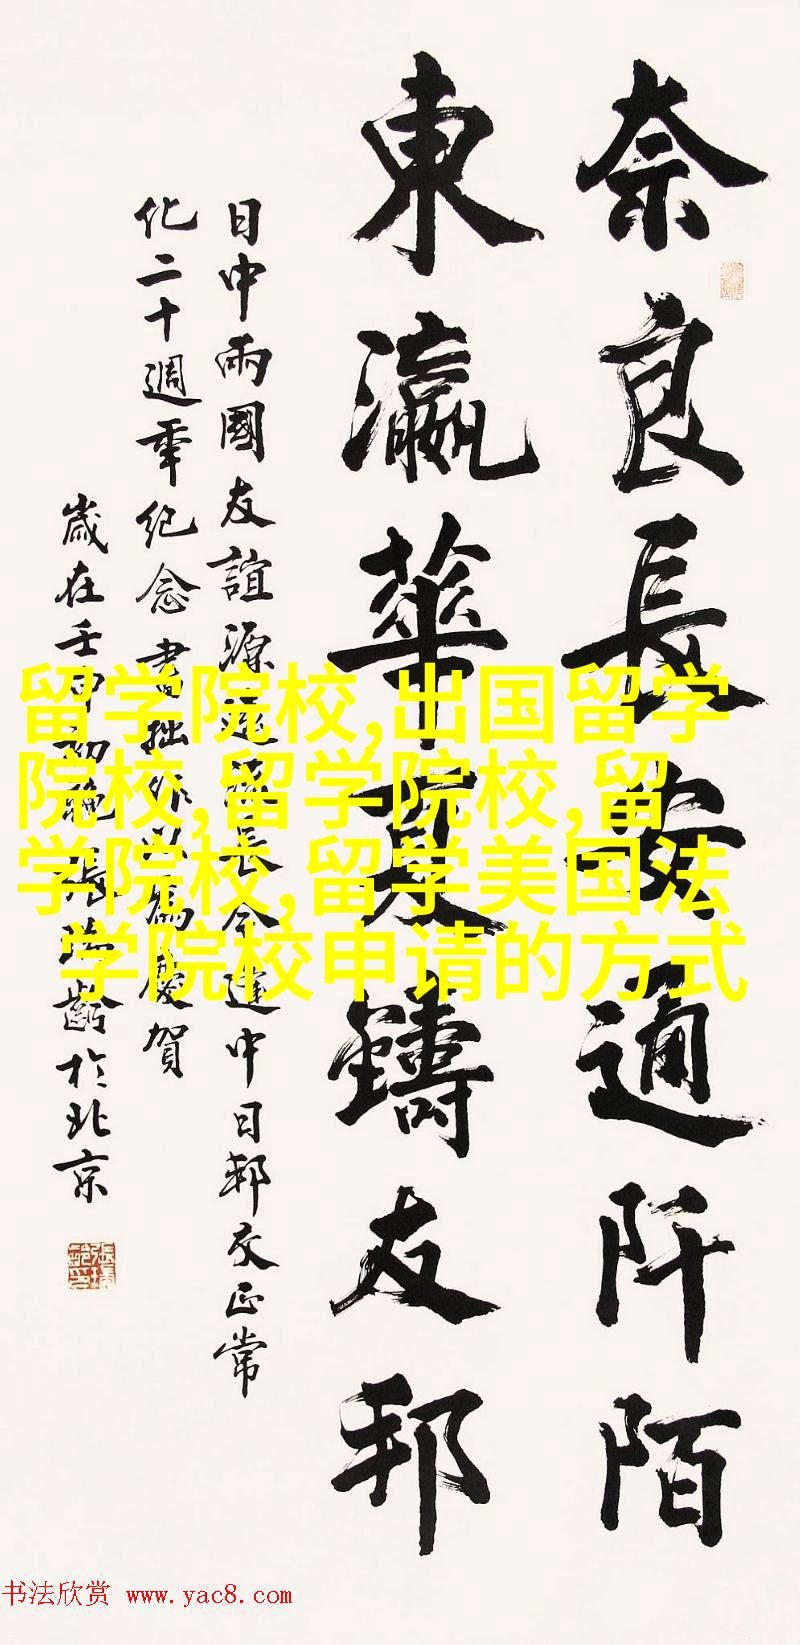 奈良長安通阡陌
東瀛華夏鑄友邦
日中兩國友誼源遠流長今逢中日邦交正常
化二十週年纪念書拙作以為慶賀
歲在壬申初秋張瑞齡於北京
留学院校,出国留学
院校,留学院校,留
学院校,留学美国法
学院校申请的方式
书法欣赏 www.yac8.com